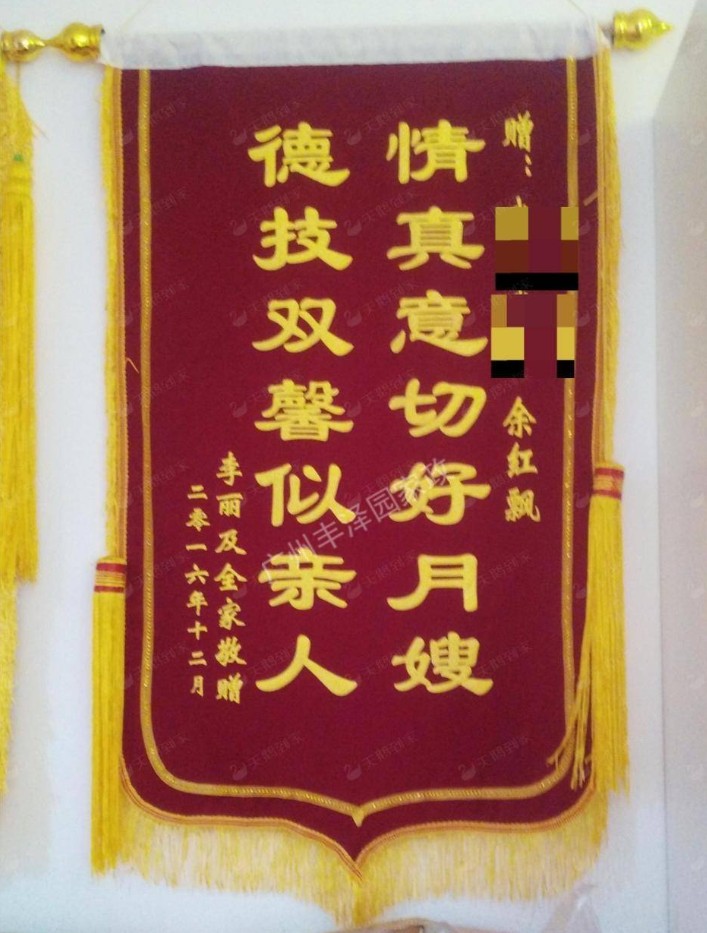 赠：
余红飘
情真意切好月嫂
德技双馨似亲人
李丽及全家敬赠
二零一六年十二月
广州丰泽园家政
天鹅到家